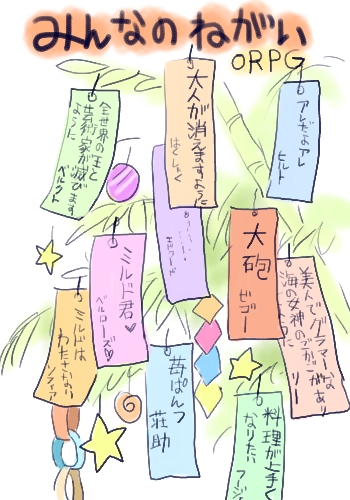 みんなのねがい
ORPG
大人が消えますように
はくしゃく
アレだよアレ
ヒルト
全世界の王と
芸術家が滅びます
ように
ベルクト
大砲
ゼゴー
ミルド君♡
ベルローズ♡
美人でグラマーな
海の女神のごかごがあり
ますように
リー
ミルドは
わたさない
ソフィア
苺ぱんつ
荘助
料理が上手く
なりたい
フージ